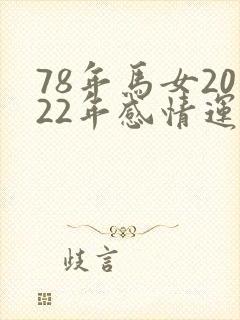 78年馬女20
22年感情運
歧言